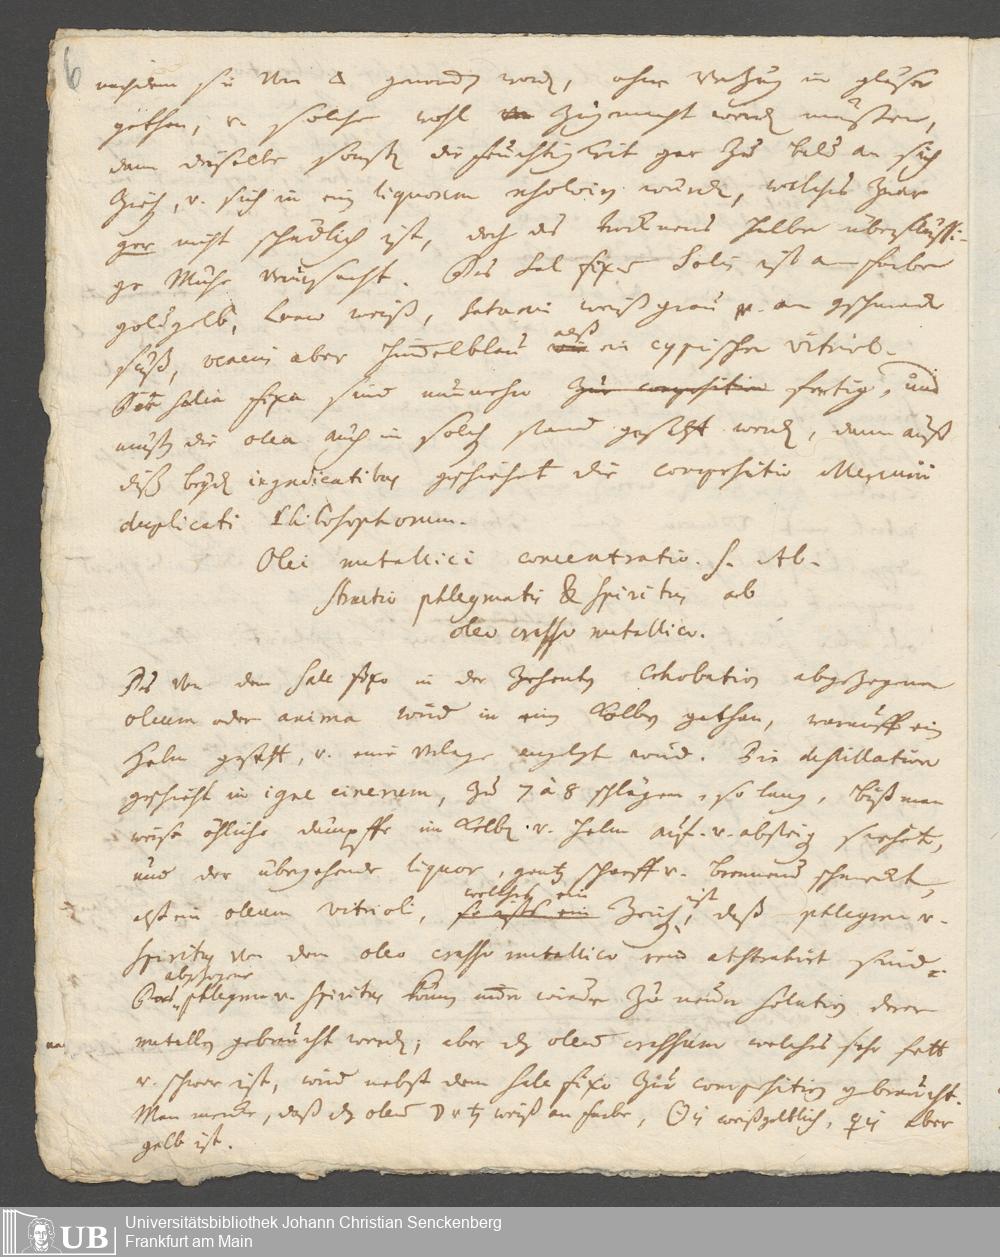 6
nachdem sie vom △ genomen word, ohne Verzug in gläser
gethan, v. solche wohl zugemacht werd müßen,
dann dieselbe sonst die feuchtigkeit gar zu bald an sich
zieh, v. sich in ein liquorem resolvirn würd, welches zwar
gar nicht schädlich ist, doch des trocknens halber überflüssi-
ge Mühe verursacht. Das Sal fixum Solis ist an farbe
goldgelb, Lunae weiß, Saturni weißgrau v. am geschmack
süß, veneris aber himelblau alß ein cyprischer vitriol.
Die Salia fixa sind nunmehr zur composition fertig, und
muß die olea auch in solch stand gesetzt werd, dann auß
diß beyd ingredientibus geschiehet die compositio Mercurii
duplicati Philosophorum.
Olei metallici concentratio. S. Ab-
stractio phlegmatis & Spiritus ab
oleo crasso metallico.
Das von dem Sale fixo in der zehenten Cohobation abgezogene
oleum oder anima wird in ein Kolben gethan, worauff ein
Helm gesetzt, v. eine Vorlage angelegt wird. Die destillation
geschieht in igne cinerum, zu 7 à 8 schlägen, so lang, biß man
weiße öhliche dämpffe im Kolb v. Helm auf- v. absteig siehet,
und der übergehende liquor, gantz scharff v. brennend schmeckt,
alß ein oleum vitrioli, welches ein Zeich ist, daß phlegma v.
Spiritus von dem oleo crasso metallico rein abstrahirt sind.
Das abgezogene phlegma v. Spiritus könen nun wieder zu neuer Solution derer
metallen gebraucht werd; aber dz oleum crassum welches sehr fett
v. schwer ist, wird nebst dem Sale fixo zur composition gebraucht.
Man mercke, daß dz oleum ☽ v ♄ weiß an farbe, ☉is weißgelblich, ♀is aber
gelb ist.
UB
Universitätsbibliothek Johann Christian Senckenberg
Frankfurt am Main